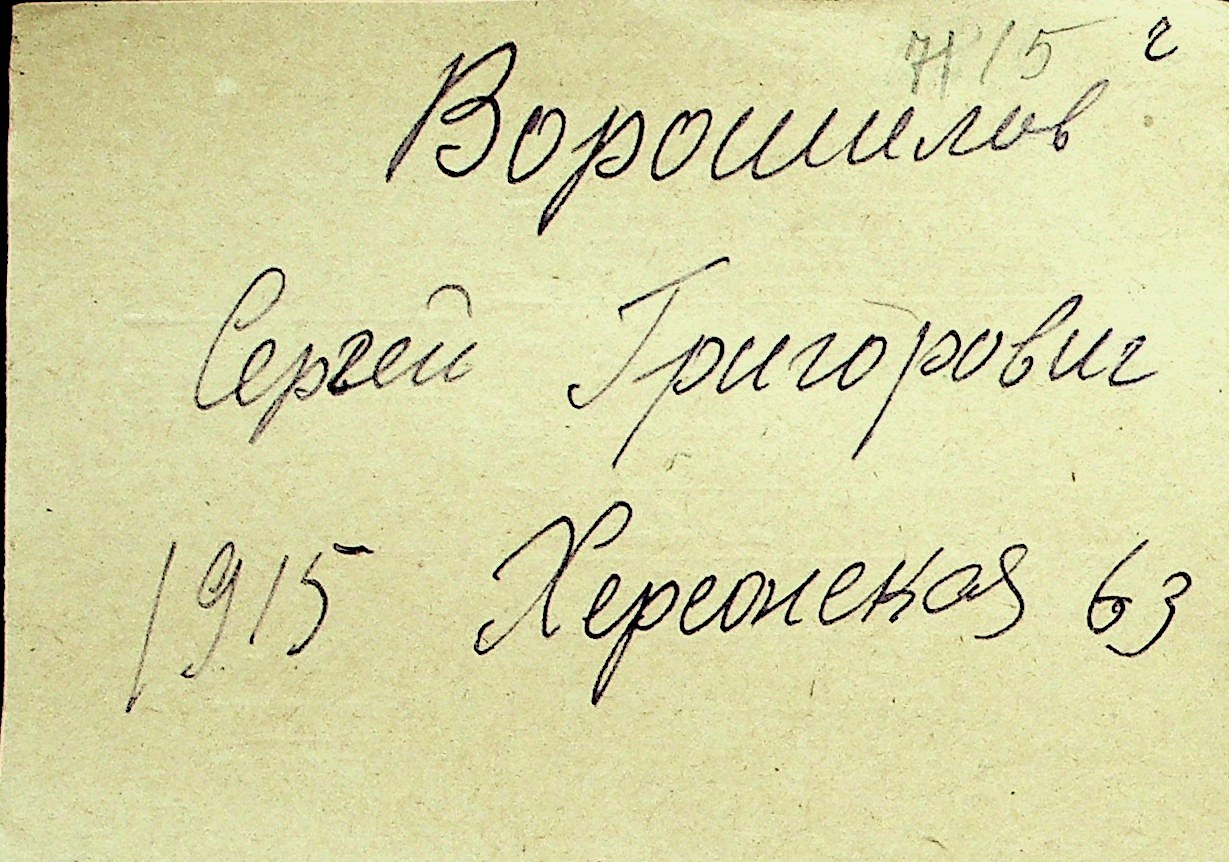 Ворошилов
Сергей Григорович
1915 Херсонская 63